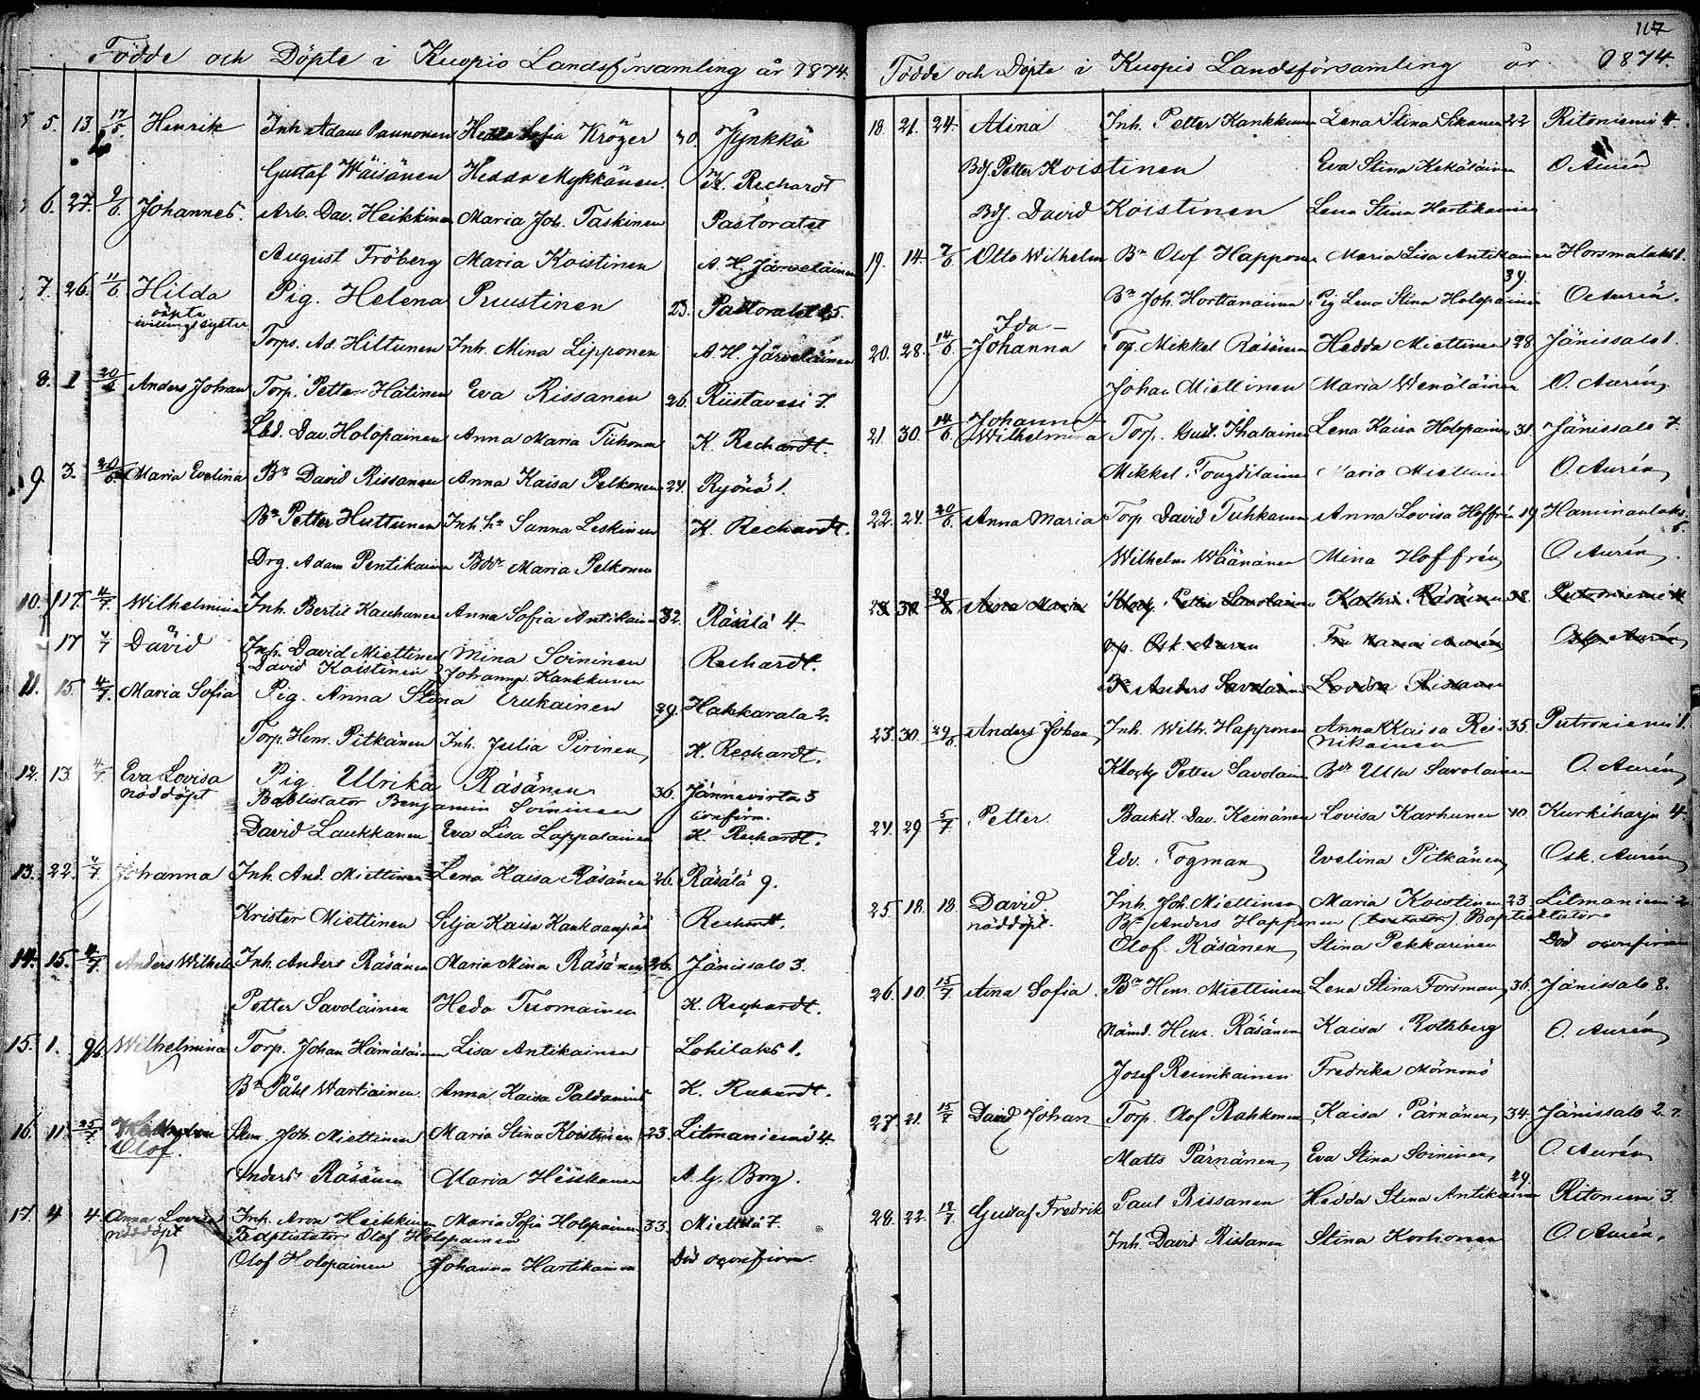 Födde och Döpte i Kuopio Landsförsamling år 1874.
5. 13. 17/5. Henrik Inh. Adam Paunonen Hedda Sofia Kröger 30. Jynkkä
Gustaf Wäisänen Hedda Mykkänen. K. Rechardt
6. 27. Johannes. Arb. Dav. Heikkinen Maria Joh. Taskinen Pastoratet
August Fröberg Maria Koistinen A. H. Järveläinen
7. 26. 11/6 Hilda Pig. Helena Puustinen 23. Pastoratet 25.
oäkta
tvillingsyster
Torp. Ad. Hiltunen Inh. Mina Lipponen A. H. Järveläinen
8. 1 20/6 Anders Johan Torp. Petter Hätinen Eva Rissanen 26. Riistavesi 7.
Dav. Holopainen Anna Maria Tiihonen K. Rechardt.
9. 3. 20/6. Maria Evelina Bn David Rissanen Anna Kaisa Pelkonen 24. Ryönä 1.
Bn Petter Huttunen Inh. Sanna Leskinen K. Rechardt.
Drg. Adam Pentikäinen Maria Pelkonen
10. 17. 4/7. Wilhelmina Inh. Bertil Kauhanen Anna Sofia Antikainen 32. Räsälä 4.
17 4/7 David Inh. David Miettinen Mina Soininen Rechardt.
David Koistinen Johanna Kankkunen
11. 15. 4/7. Maria Sofia Pig. Anna Stina Erukainen 29. Hakkarala 2.
Torp. Henr. Pitkänen Inh. Julia Pirinen K. Rechardt.
12. 13. 4/7. Eva Lovisa Pig. Ulrika Räsänen 36. Jännevirta 3
nöddöpt Baptistator Benjamin Soininen confirm.
David Laukkanen Eva Lisa Lappalainen K. Rechardt.
13. 22. 4/7. Johanna Inh. And. Miettinen Lena Kaisa Räsänen 26. Räsälä 9.
Krister Miettinen Silja Kaisa Kankaanpää Rechardt.
14. 15. 4/7. Anders Wilhelm Inh. Anders Räsänen Maria Mina Räsänen 26. Jänissalo 3.
Petter Savolainen Heda Tuomainen K. Rechardt.
15. 1. 9/6 Wilhelmina Torp. Johan Hämäläinen Lisa Antikainen Lohilaks 1.
Bn Påhl Wartiainen. Anna Kaisa Paldanius K. Rechardt.
16. 11. 25/7. Olof. Joh. Miettinen Maria Stina Koistinen 23. Litmaniemi 4.
Anders Räsänen Maria Heiskanen A. G. Borg.
17. 4 4. Anna Lovisa Inh. Aron Heikkinen Maria Sofia Holopainen 33. Miettilä 7.
nöddöpt Baptistator Olof Holopainen
Olof Holopainen Johanna Hartikainen Död oconfirm.
117
Födde och Döpte i Kuopio Landsförsamling år. 1874.
18. 21. 24. Alina Inh. Petter Kankkunen Lena Stina Sikanen 22 Ritoniemi 4.
Bdf. Petter Koistinen Eva Stina Kekäläinen O. Aurén
Bdf. David Koistinen Lena Stina Hartikainen
19. 14. 7/6 Otto Wilhelm Bn Olof Happonen Maria Lisa Antikainen Horsmalaks 1.
39.
Bn Joh. Hortanainen Pig Lena Stina Holopainen O. Aurén.
Ida
20. 28. 14/6 Johanna Torp. Mikkel Räsänen Hedda Miettinen 28 Jänissalo 1.
Johan Miettinen Maria Wenäläinen O. Aurén
Johanna
21. 30. 14/6. Wilhelmina Torp. Gust. Ihalainen Lena Kaisa Holopainen 31. Jänissalo 7.
Mikkel Maria Miettinen O. Aurén
22. 24. 20/6 Anna Maria Torp. David Tuhkanen Anna Lovisa Hoffrén 19 Haminanlaks
5.
Wilhelm Wäänänen Mina Hoffrén O. Aurén.
23 30. 29/6 Anna Maria Klock. Petter Savolainen Kathr. Räsänen 38. Putroniemi
Osk Aurén Fru Aurén Osk. Aurén
Bn Anders Savolainen Lovisa Rissanen
23. 30. 29/6 Anders Johan Inh. Wilh. Happonen Anna Kaisa Rei- 35. Putroniemi 1.
nikainen
Klock Petter Savolainen Ulla Savolainen O. Aurén
24. 29 5/7 Petter. Backst. Dav. Keinänen Lovisa Karhunen 40. Kurkiharju 4.
Edv. Fogman Evelina Pitkänen Osk. Aurén
25 18. 18 David Inh. Joh. Miettinen Maria Koistinen 23. Litmaniemi 2.
nöddöpt. Bn Anders Happonen Baptistator
Olof Räsänen Stina Pekkarinen Död oconfirm
26. 10. 15/7 Aina Sofia. Bn Henr. Miettinen Lena Stina Forsman 36. Jänissalo 8.
Nämd. Henr. Räsänen Kaisa Rothberg O. Aurén
Josef Reinikainen Fredrika
27. 21. 15/7 David Johan Torp. Olof Rahkonen Kaisa Pärnänen 34. Jänissalo 2.
Matts Pärnänen Eva Stina Soininen O. Aurén
29.
28. 22. Gustaf Fredrik Paul Rissanen Hedda Stina Antikainen Ritoniemi 3.
Inh. David Rissanen Stina Korhonen O. Aurén.